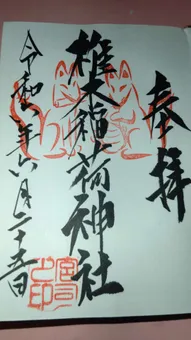 奉拝
椎木稲荷神社
令和八年六月二十五日
宮司之印